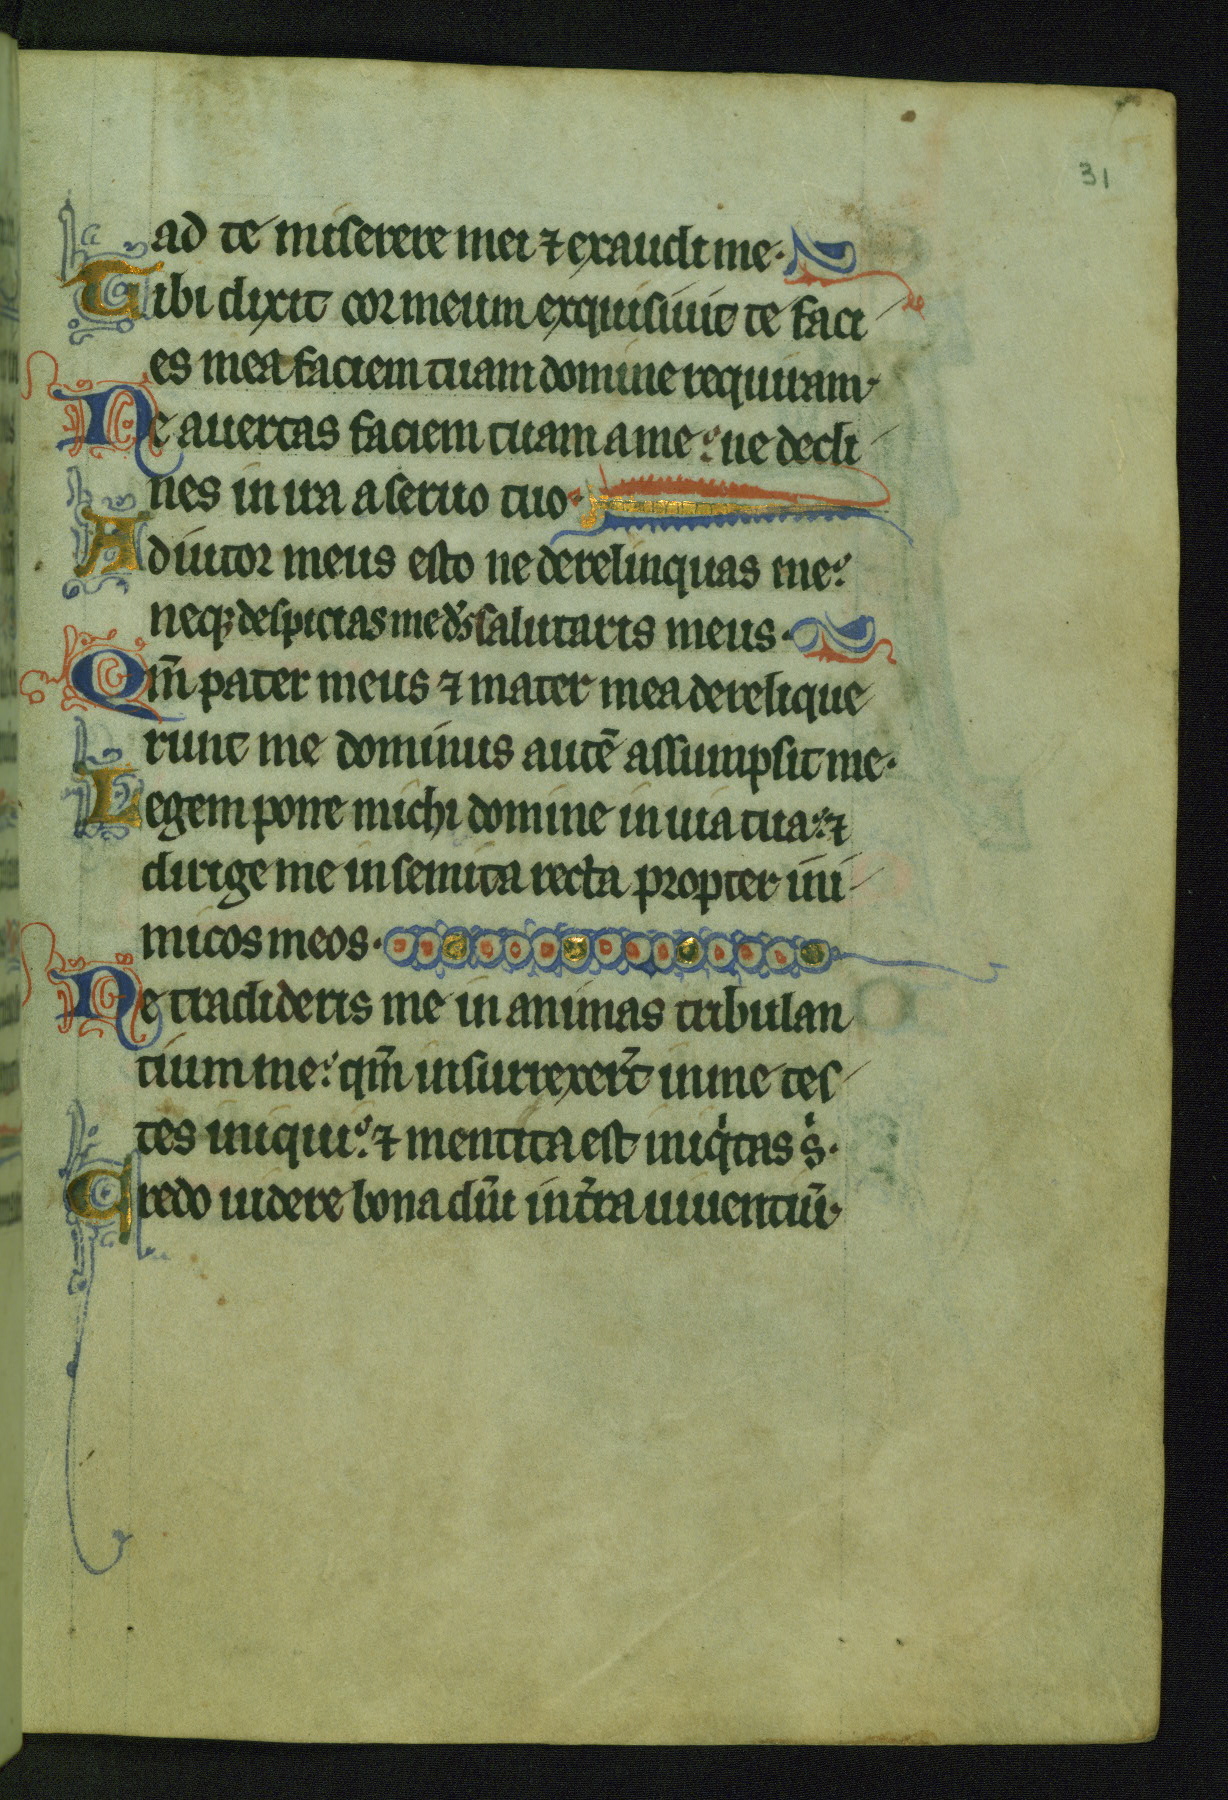 31
ad te miserere mei ⁊ exaudi me·
Tibi dixit cor meum exquisiuit te faci
es mea faciem tuam domine requiram·
Ne auertas faciem tuam a me: ne decli
nes in ira a seruo tuo·
Adiutor meus esto ne derelinquas me:
neqꝫ despicias me ds̄ salutaris meus·
Qm̄ pater meus ⁊ mater mea derelique
runt me dominus autē assumpsit me·
Legem pone michi domine in uia tua: ⁊
dirige me in semita recta propter ini
micos meos·
Ne tradideris me in animas tribulan
tium me: qm̄ insurrexer̄t in me tes
tes iniqui: ⁊ mentita est iniqͥtas sͥ·
Credo uidere bona dn̄i in t̄ra uiuentiū·